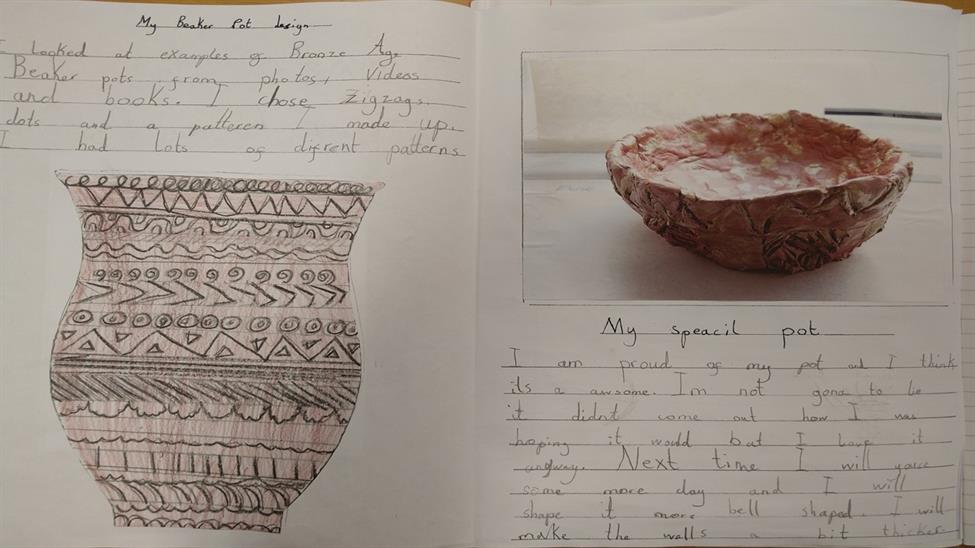 My Beaker Pot design
I looked at examples of Bronze Age
Beaker pots from photos, videos
and books. I chose zigzags.
dots and a patteren I made up.
I had lots of difrent patterns
My speacil pot
I am proud of my pot and I think
its a awsome. Im not gona to lie
it didnt come out how I was
hoping it would but I love it
anyway. Next time I will
some more clay and I will
shape it more bell shaped. I will
make the walls a bit thicker.